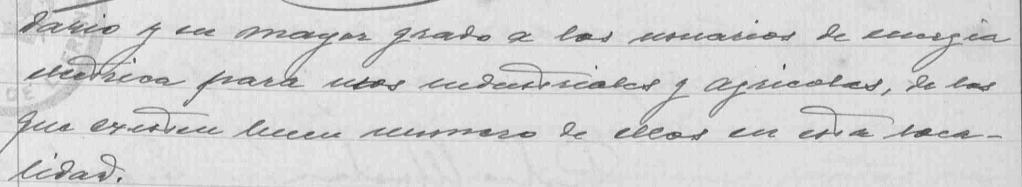 dario y en mayor grado a los usuarios de energia
electrica para usos industriales y agricolas, de los
que existen buen numero de ellos en esta loca-
lidad.